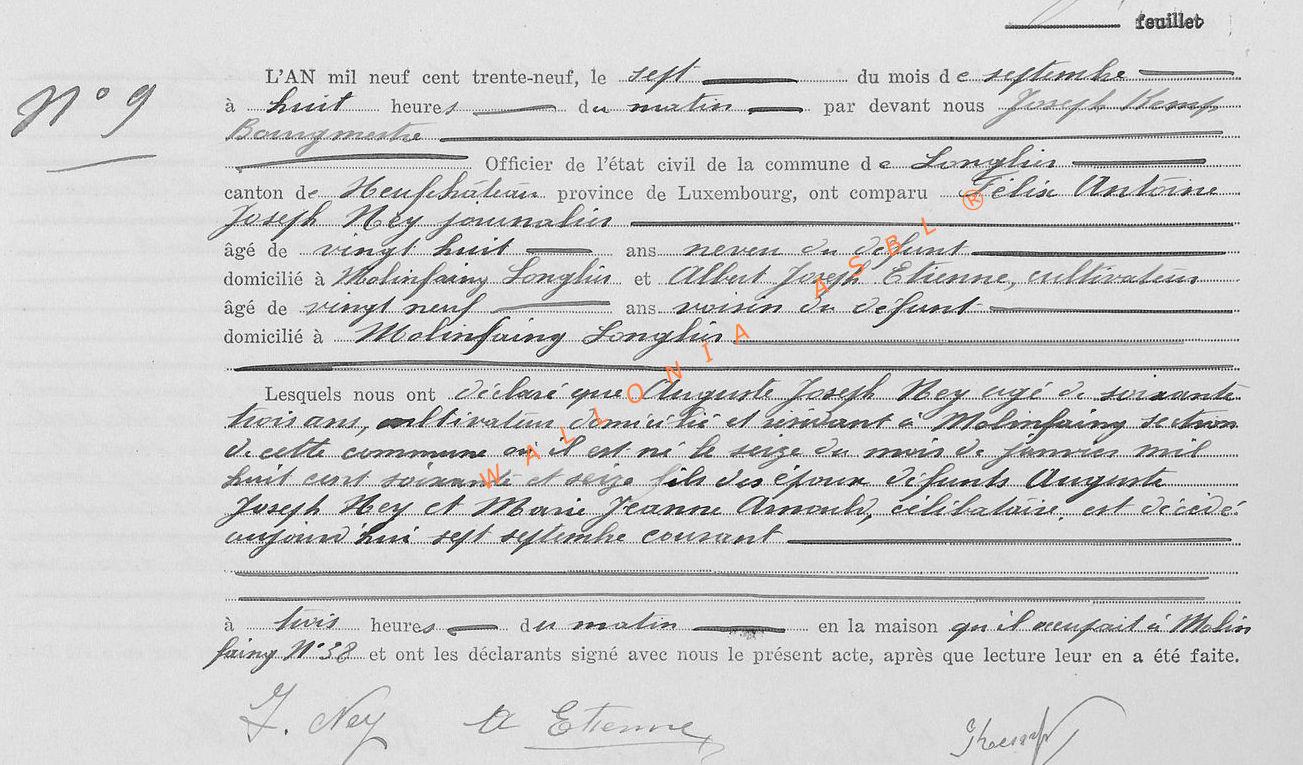 feuillet
N° 9
L'AN mil neuf cent trente-neuf, le sept du mois de septembre
à huit heures du matin par devant nous Joseph Kemp
Bourgmestre
Officier de l'état civil de la commune de Longlier
canton de Neufchâteau province de Luxembourg, ont comparu Félix Antoine
Joseph Ney journalier
âgé de vingt huit ans neveu du défunt
domicilié à Molinfaing Longlier et Albert Joseph Etienne, cultivateur
âgé de vingt neuf ans voisin du défunt
domicilié à Molinfaing Longlier
Lesquels nous ont déclaré que Auguste Joseph Ney agé de soixante
trois ans, cultivateur domicilié et résidant à Molinfaing section
de cette commune où il est né le seize du mois de janvier mil
huit cent soixante et seize fils des époux défunts Auguste
Joseph Ney et Marie Jeanne Arnould, célibataire, est décédé
aujourd'hui sept septembre courant
à trois heures du matin en la maison qu'il occupait à Molin
faing N° 38 et ont les déclarants signé avec nous le présent acte, après que lecture leur en a été faite.
F. Ney A Etienne
WALLONIA ASBL ®